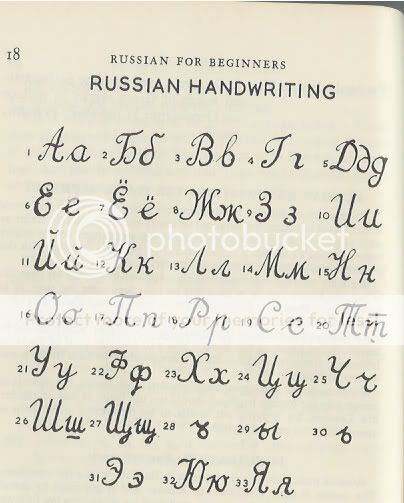 18
RUSSIAN FOR BEGINNERS
RUSSIAN HANDWRITING
1 Аа 2 Бб 3 Вв 4 Гг 5 Ддд
6 Ее 7 Ёё 8 Жж 9 Зз 10 Ии
photobucket
11 Йй 12 Кк 13 Лл 14 Мм 15 Нн
16 Оо 17 Пп 18 Рр 19 Сс 20 Тт
Protect more of your memories for less!
21 Уу 22 Фф 23 Хх 24 Цц 25 Чч
26 Шш 27 Щщ 28 ъ 29 ы 30 ь
31 Ээ 32 Юю 33 Яя